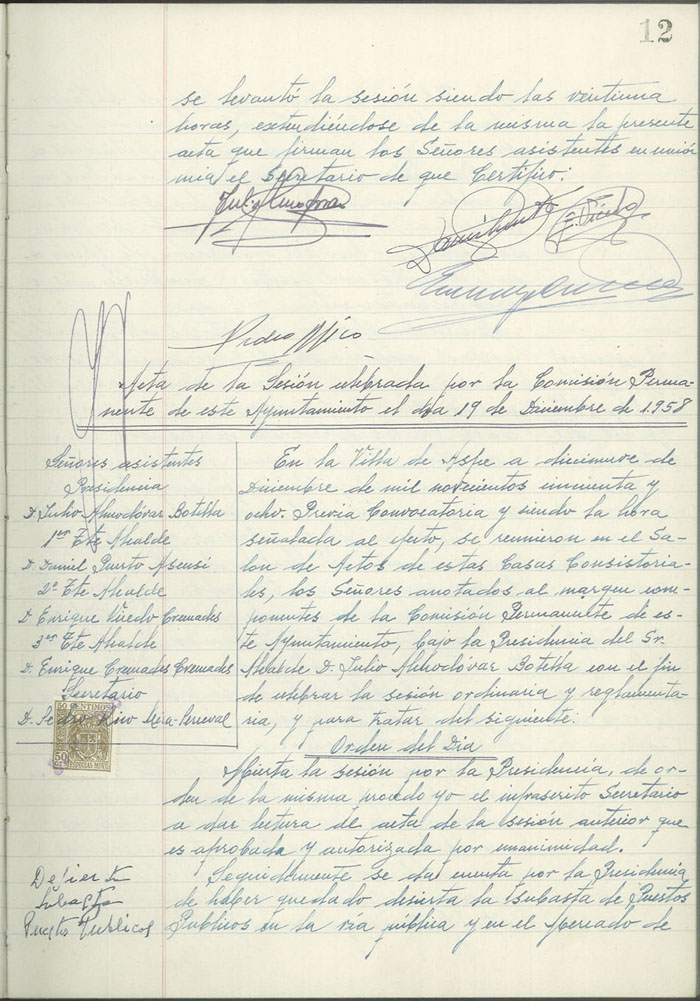 12
se levantó la sesión siendo las veintiuna
horas, extendiéndose de la misma la presente
acta que firman los Señores asistentes en unión
mia el Secretario de que Certifico:
Pedro Mico
Acta de la Sesión celebrada por la Comisión Perma-
nente de este Ayuntamiento el dia 19 de Diciembre de 1.958
Señores asistentes
Presidencia
D. Julio Almodóvar Botella
1er Tte Alcalde
D. Daniel Puerto Asensi
2º Tte Alcalde
D. Enrique Viñedo Cremades
3er Tte Alcalde
D. Enrique Cremades Cremades
Secretario
D. Pedro Mico
50 CENTIMOS
50
ESPECIAL MOVIL
En la Villa de Aspe a diecinueve de
Diciembre de mil novecientos cincuenta y
ocho. Previa Convocatoria y siendo la hora
señalada al efecto, se reunieron en el Sa-
lon de Actos de estas Casas Consistoria-
les, los Señores anotados al margen com-
ponentes de la Comisión Permanente de es-
te Ayuntamiento, bajo la Presidencia del Sr.
Alcalde D. Julio Almodóvar Botella con el fin
de celebrar la sesión ordinaria y reglamenta-
ria, y para tratar del siguiente:
Orden del Dia
Abierta la sesión por la Presidencia, de or-
den de la misma procedo yo el infrascrito Secretario
a dar lectura del acta de la sesión anterior que
es aprobada y autorizada por unanimidad.
Desierta
Subasta
Puestos Publicos
Seguidamente se da cuenta por la Presidencia
de haber quedado desierta la Subasta de Puestos
Publicos en la via pública y en el Mercado de